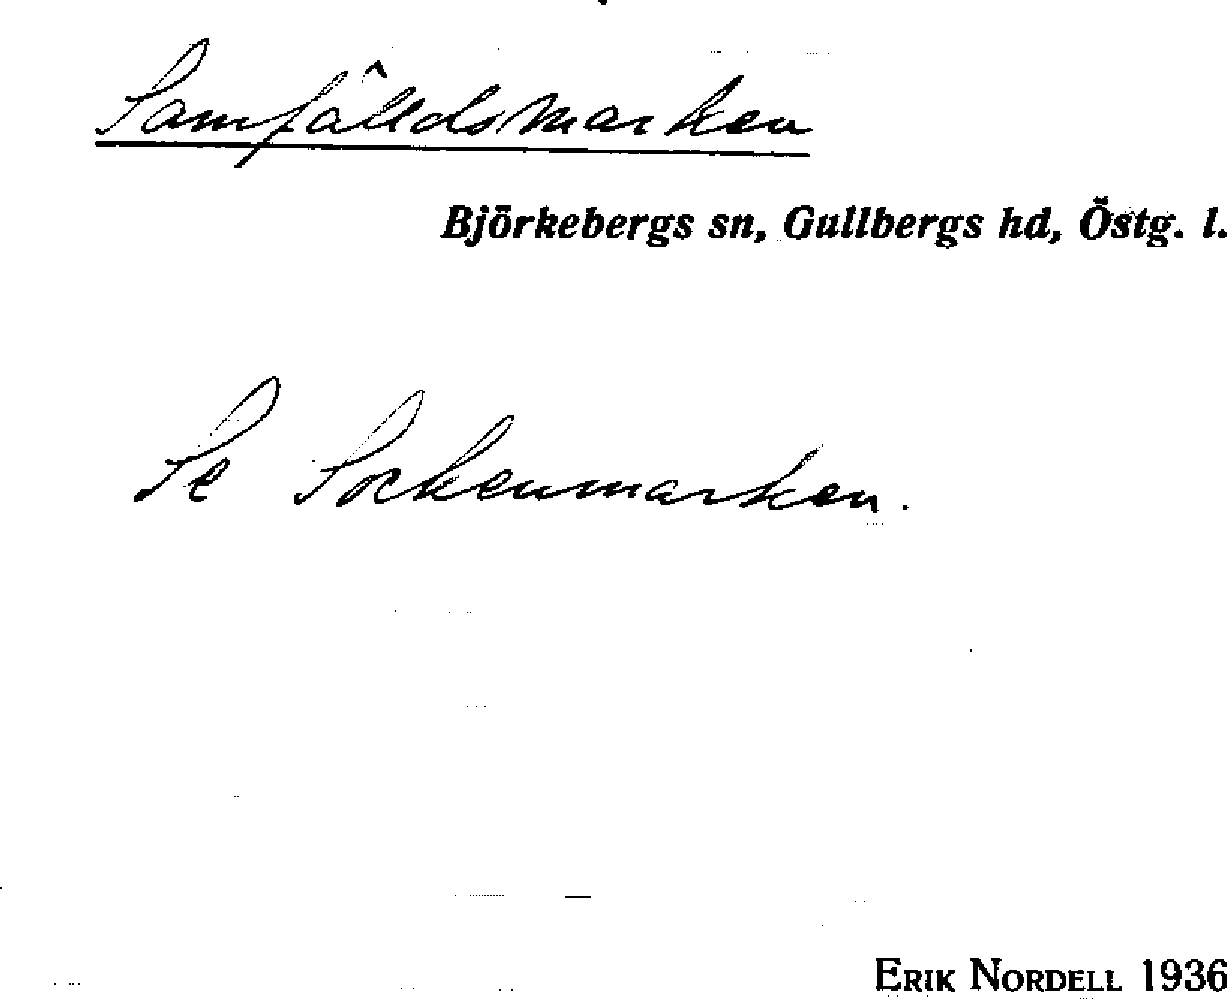 Samfälldsmarken
Björkebergs sn, Gullbergs hd, Östg. l.
Se Sockenmarken.
ERIK NORDELL 1936